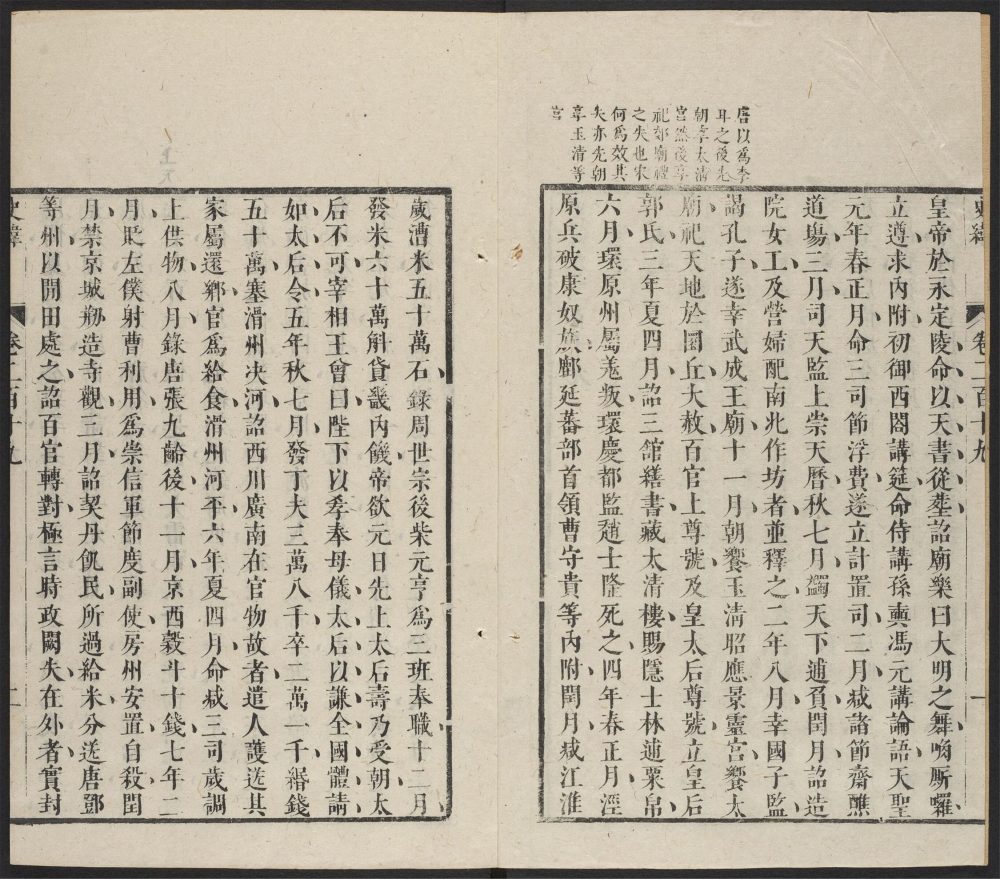 唐以爲李
耳之後先
朝享太清
宮然後享
祀郊廟禮
之失也宋
何爲效其
失亦先朝
享玉清等
宮
史緯
卷二百十九
一
皇帝於永定陵命以天書從塟詔廟樂曰大明之舞唃厮囉
立遵求內附初御西閤講筵命侍講孫奭馮元講論語天聖
元年春正月命三司節浮費遂立計置司二月减諸節齋醮
道塲三月司天監上崇天曆秋七月蠲天下逋負閏月詔造
院女工及營婦配南北作坊者並釋之二年八月幸國子監
謁孔子遂幸武成王廟十一月朝饗玉清昭應景靈宮饗太
廟祀天地於圜丘大赦百官上尊號及皇太后尊號立皇后
郭氏三年夏四月詔三館繕書藏太清樓賜隱士林逋粟帛
六月環原州屬羗叛環慶都監趙士隆死之四年春正月涇
原兵破康奴族鄜延蕃部首領曹守貴等內附閏月减江淮
歲漕米五十萬石錄周世宗後柴元亨爲三班奉職十二月
發米六十萬斛貸畿內饑帝欲元日先上太后壽乃受朝太
后不可宰相王曾曰陛下以孝奉母儀太后以謙全國體請
如太后令五年秋七月發丁夫三萬八千卒二萬一千緡錢
五十萬塞滑州决河詔西川廣南在官物故者遣人護送其
家屬還鄉官爲給食滑州河平六年夏四月命减三司歲調
上供物八月錄唐張九齡後十一月京西穀斗十錢七年二
月貶左僕射曹利用爲崇信軍節度副使房州安置自殺閏
月禁京城刱造寺觀三月詔契丹飢民所過給米分送唐鄧
等州以閒田處之詔百官轉對極言時政闕失在外者實封
史緯
卷二百十九
二